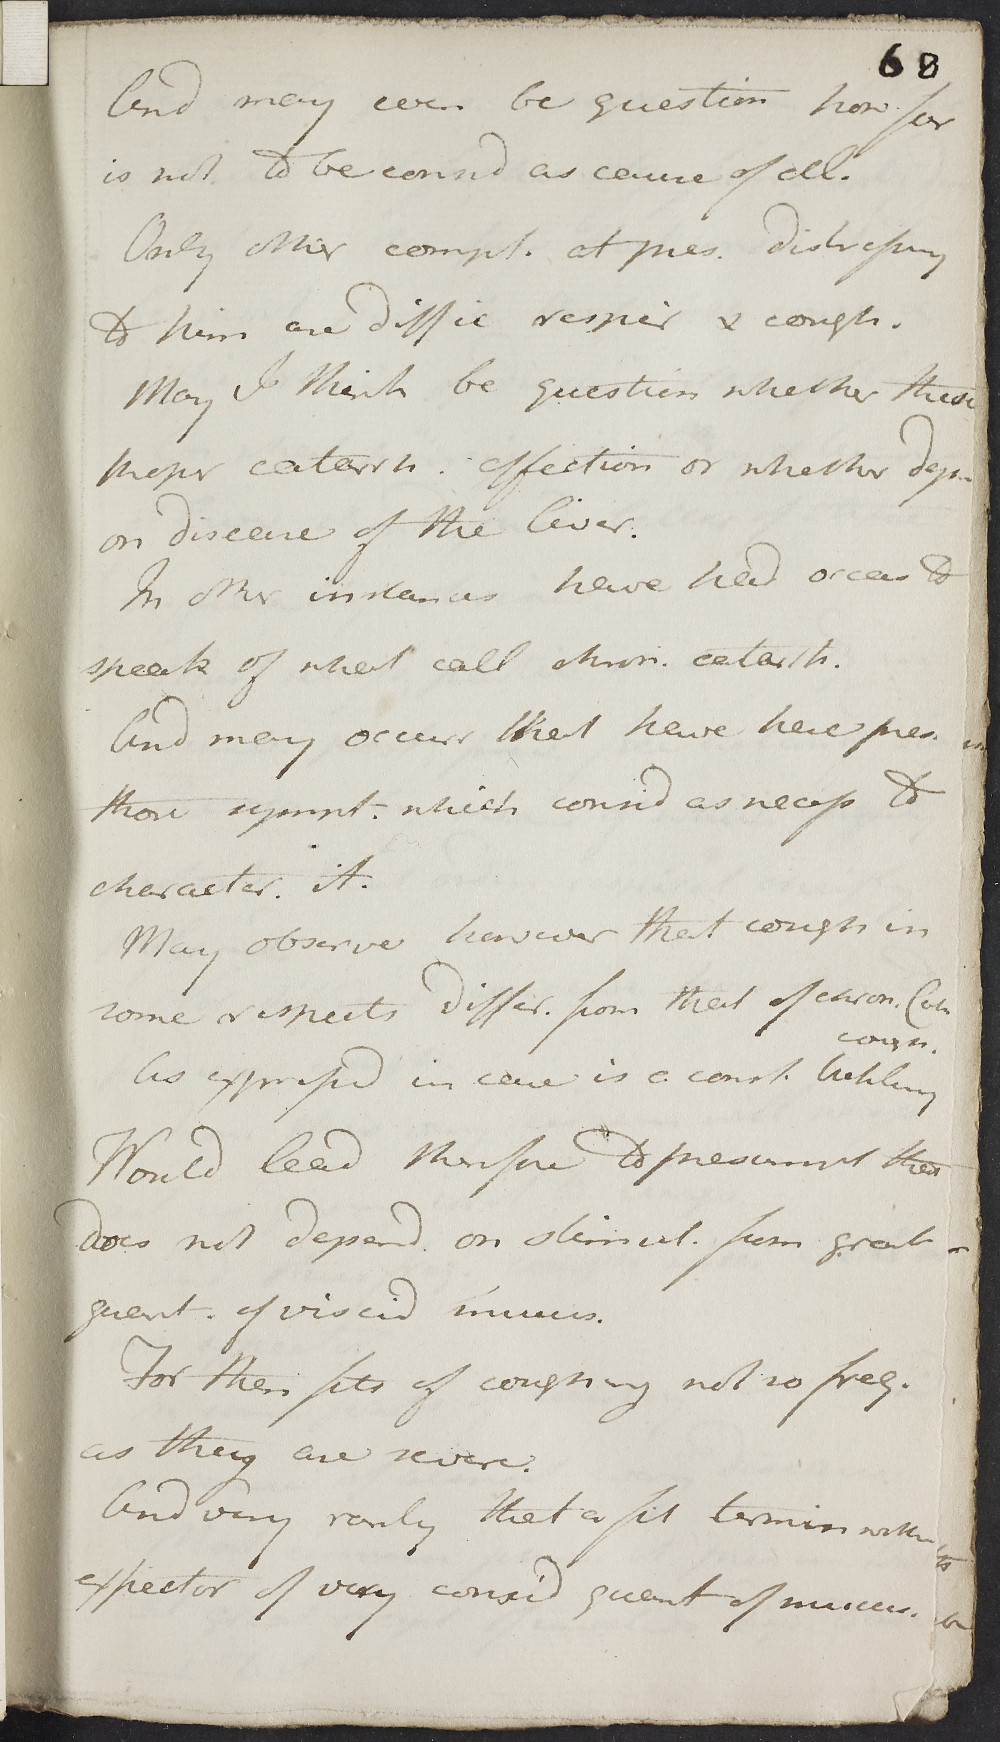 68
And may even be question how far
is not to be consid as cause of all.
Only other compl. at pres. distressing
to him are diffic respir & cough.
May I think be question whether these
proper catarrh. affection or whether dep.
on disease of the liver.
In other instances have had occas to
speak of what call chron. catarrh.
And may occurr that have here pres.
those sympt. which consid as necess to
character. it.
May observe however that cough in
some respects differ. from that of chron. Cat.
cough.
As express'd in case is a const. tickling
Would lead therefore to presume that
does not depend on stimul. from great
quant. of viscid mucus.
For then fits of coughing not so freq.
as they are severe.
And very rarely that a fit termin
expector of very consid quant of mucus.